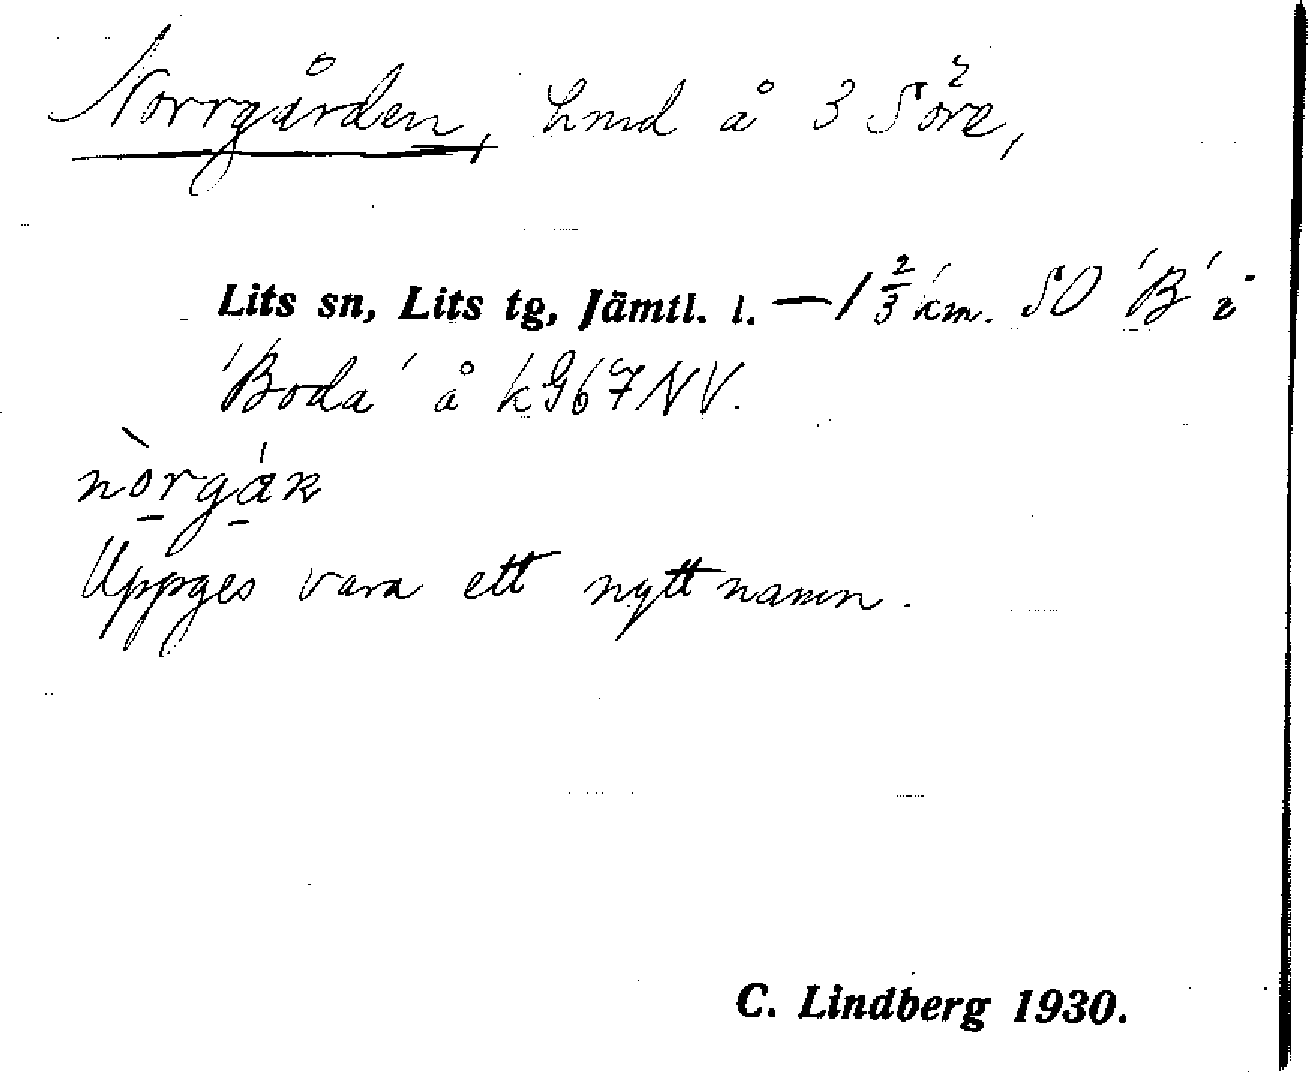 Norrgården, hmd å 3 Söre,
Lits sn, Lits tg, Jämtl. l. — 1 2/3 km. SO 'B' i
'Boda' å kg67NV.
nòrgák
Uppges vara ett nytt namn.
C. Lindberg 1930.